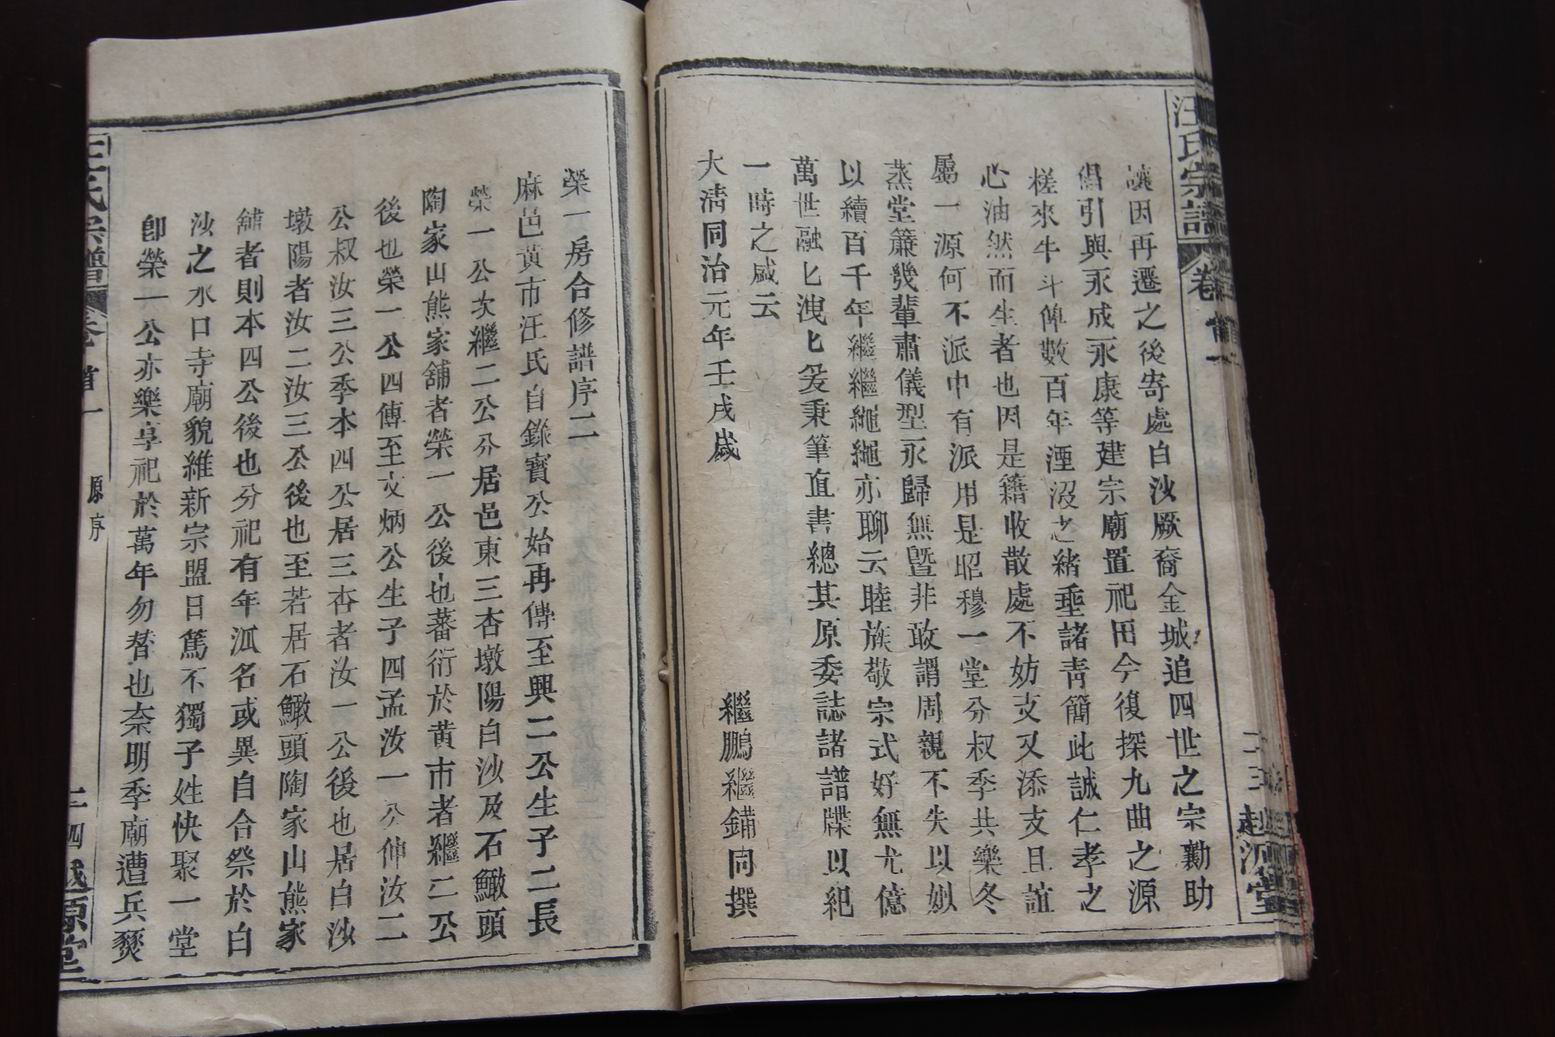 汪氏宗譜 卷首一
讓因再遷之後寄處白沙厥裔金城追四世之宗勷助
倡引與永成永康等建宗廟置祀田今復探九曲之源
槎來牛斗俾數百年湮沒之緒垂諸靑簡此誠仁孝之
心油然而生者也因是籍收散處不妨支又添支且誼
屬一源何不派中有派用是昭穆一堂分叔季共樂冬
蒸堂簾幾輩肅儀型永歸無曁非敢謂周親不失以姒
以續百千年繼繼繩繩亦聊云睦族敬宗式好無尤億
萬世融匕洩匕爰秉筆直書總其原委誌諸譜牒以紀
一時之盛云
大淸同治元年壬戌歲
繼鵬繼鏽同撰
榮一房合修譜序二
麻邑黃市汪氏自錄寳公始再傳至興二公生子二長
榮一公次繼二公分居邑東三杏墩陽白沙及石鰍頭
陶家山熊家舖者榮一公後也蕃衍於黃市者繼二公
後也榮一公四傳至文炳公生子四孟汝一公仲汝二
公叔汝三公季本四公居三杏者汝一公後也居白沙
墩陽者汝二汝三公後也至若居石鰍頭陶家山熊家
舖者則本四公後也分祀有年派名或異自合祭於白
沙之水口寺廟貌維新宗盟日篤不獨子姓快聚一堂
卽榮一公亦樂享祀於萬年勿替也奈明季廟遭兵燹
汪氏宗譜 卷首一 原序 二四 越源堂